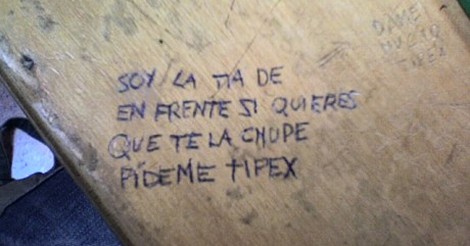 SOY LA TIA DE
EN FRENTE SI QUIERES
QUE TE LA CHUPE
PÍDEME TIPEX
DAME
MUCHO
TIPEX